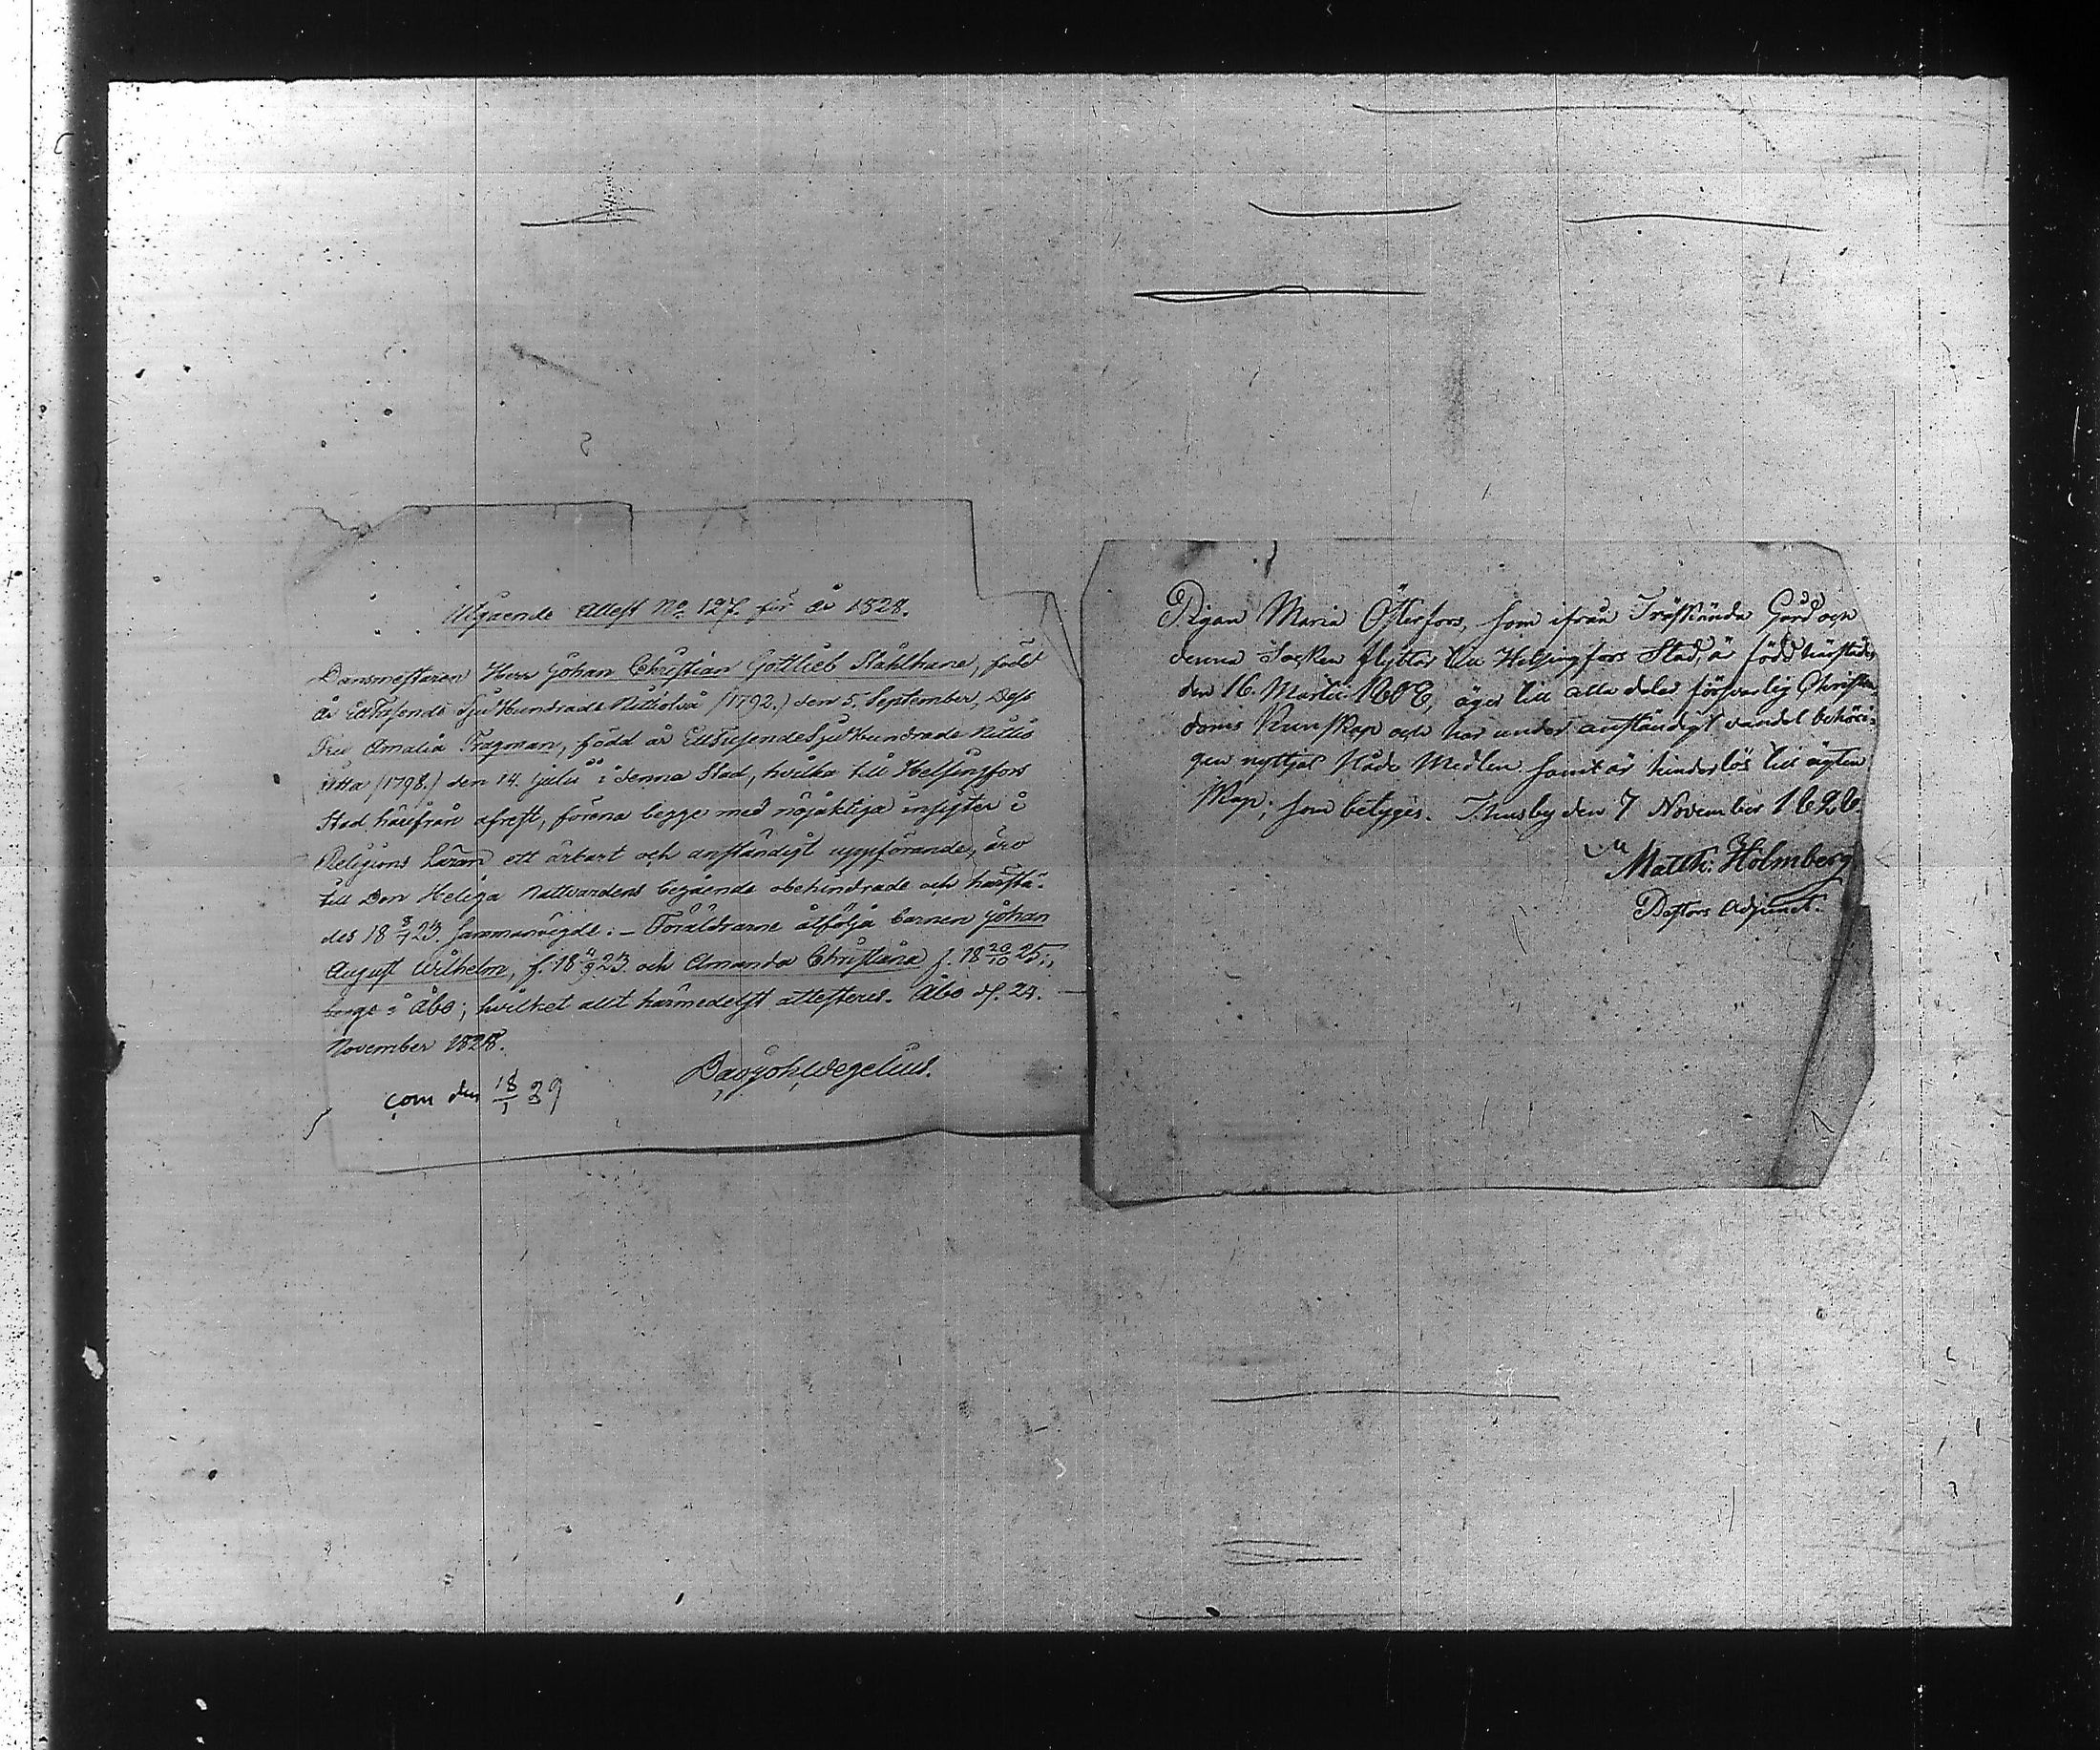 Utgående Attest No 127. för år 1828.
Dansmestaren Herr Johan Christian Gottlieb Stålhane, född
år Ettusende Sjuhundrade Nittiotvå (1792.) den 5. September, Dess
Fru Amalia Tragman, född år EttusendeSjuhundrade Nittio
åtta (1798.) den 14. Julii i denna Stad, hvilka till Helsingfors
Stad härifrån afrest, förena begge med nöjaktiga insigter i
Religions Läran ett ärbart och anständigt uppförande, äro
till Den Heliga Nattvardens begående obehindrade och härstä-
des 18 8/4 23. sammanvigde: – Föräldrarne åtfölja barnen Johan
August Wilhelm, f. 18 4/9 23. och Amanda Christiana f. 18 20/10 25:,
begge i Åbo; hvilket allt härmedelst attesteras. Åbo d. 24.
November 1828.
Dav. Joh. Wegelius.
com den 18/1 29
Pigan Maria Österfors, som ifrån Träskända Gård och
denna Socken flyttar till Helsingfors Stad, är född härstädes
den 16. Martii 1808, äger till alla delar försvarlig Christen-
doms Kunskap och har under anständigt vandel behöri-
gen nyttjat Nåde Medlen samt är hinderlös till ägten
skap; som betygas. Thusby den 7 November 1828.
Matth: Holmberg
Pastors Adjunct.